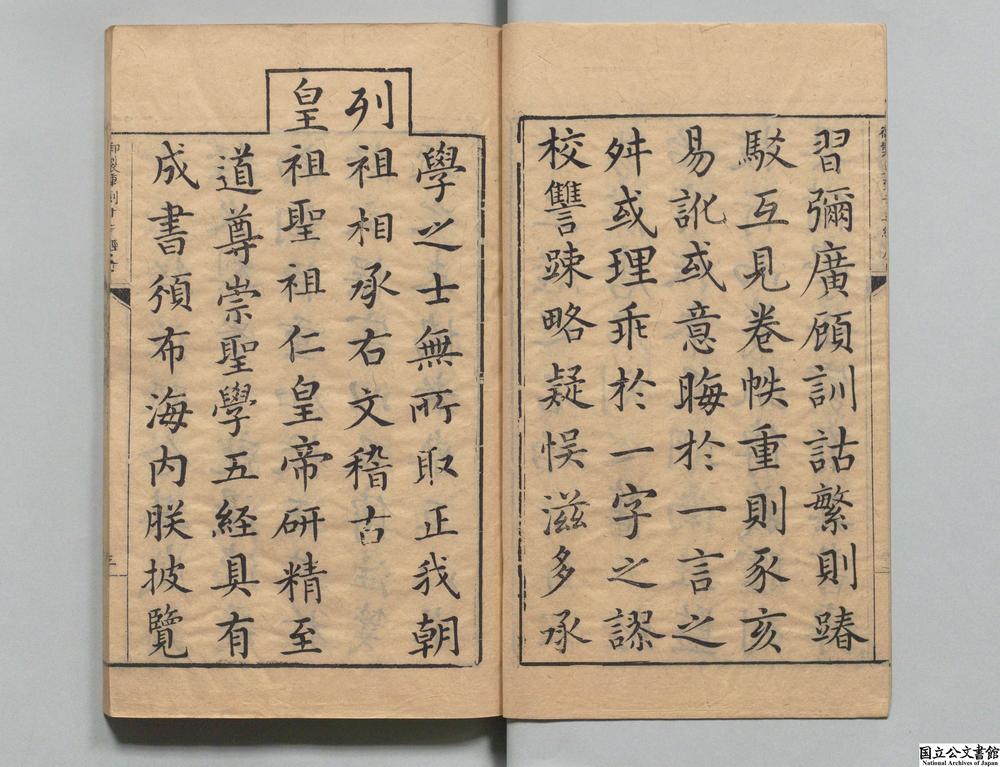 習彌廣顧訓詁繁則踳
駁互見卷帙重則豕亥
易訛或意晦於一言之
舛或理乖於一字之謬
校讐踈略疑悮滋多承
學之士無所取正我朝
列
祖相承右文稽古
皇
祖聖祖仁皇帝研精至
道尊崇聖學五経具有
成書頒布海内朕披覽
国立公文書館
National Archives of Japan